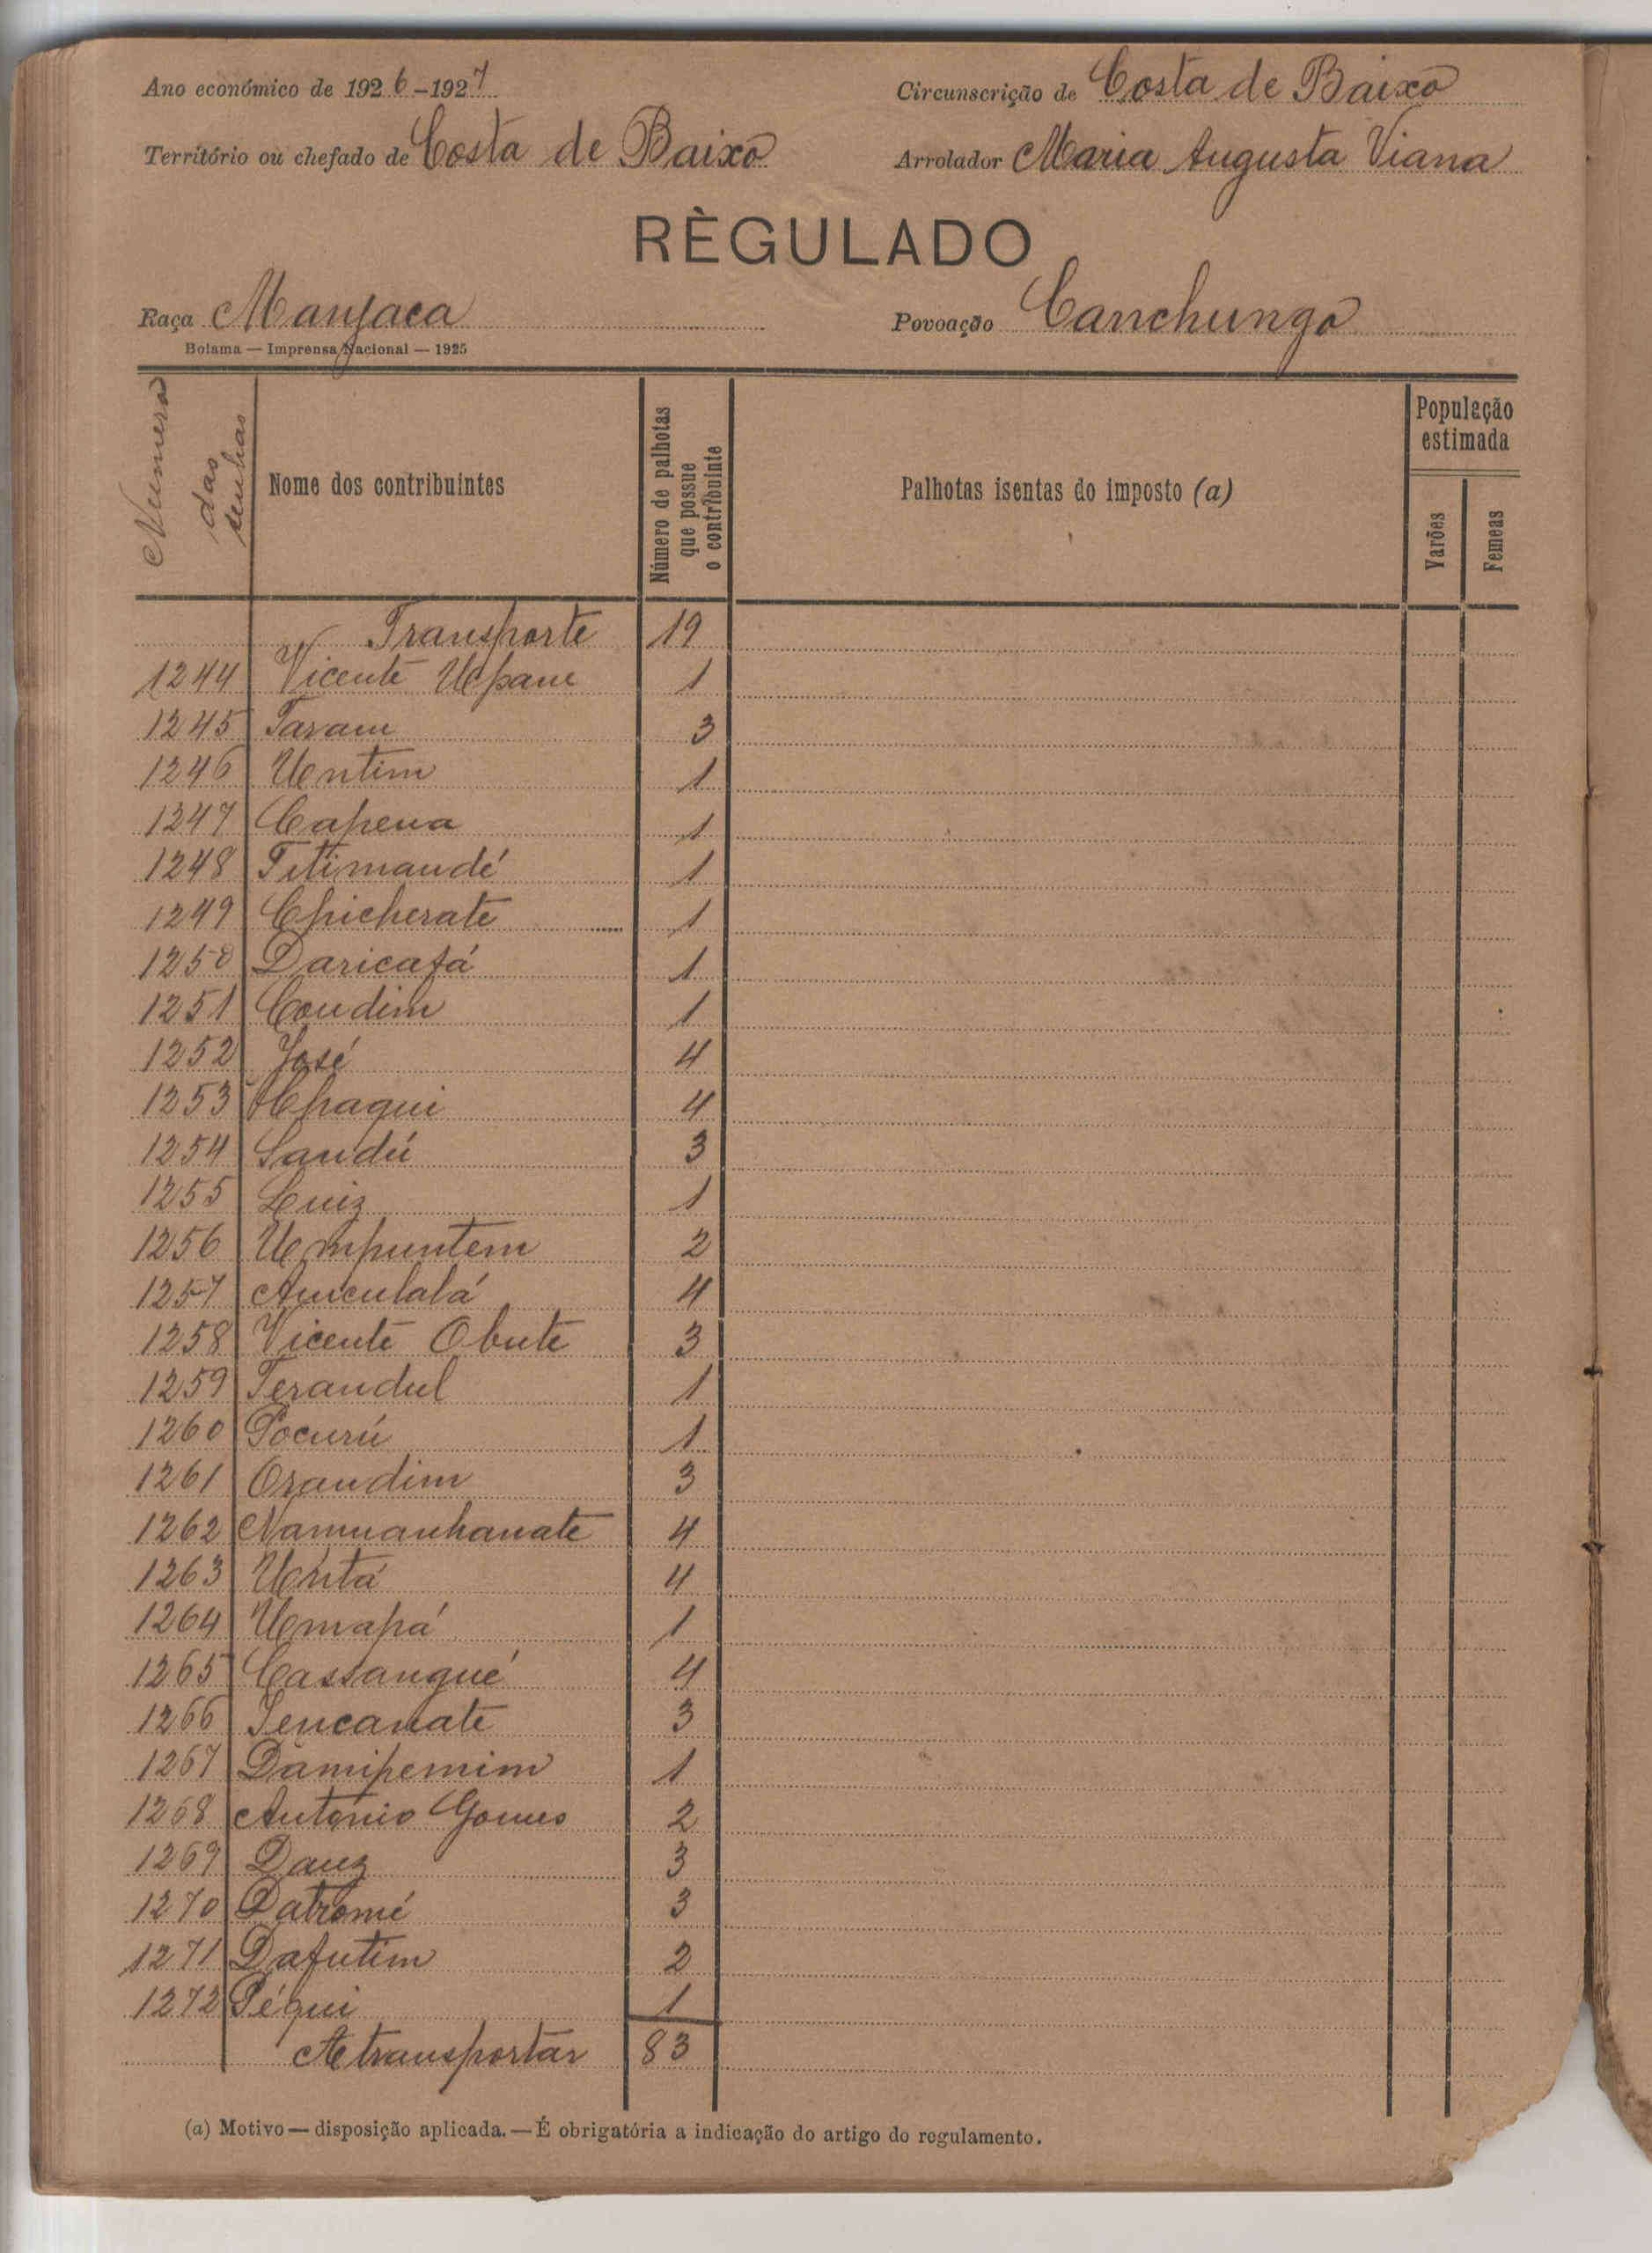 Ano económico de 1926-1927
Circunscrição de Costa de Baixo
Território ou chefado de Costa de Baixo
Arrolador Maria Augusta Viana
RÈGULADO
Raça Manjaca
Povoação Canchungo
Bolama — Imprensa Nacional — 1925
Numero das senhas
Nome dos contribuintes
Número de palhotas que possue o contribuinte
Palhotas isentas do imposto (a)
População estimada
Varões
Femeas
Transporte 19
1244 Vicente Upane 1
1245 Tavam 3
1246 Untim 1
1247 Capena 1
1248 Titimandé 1
1249 Chicherate 1
1250 Daricafá 1
1251 Condim 1
1252 José 4
1253 Upaqui 4
1254 Sandú 3
1255 Luiz 1
1256 Umpuntem 2
1257 Aniculalá 4
1258 Vicente Obute 3
1259 Terandul 1
1260 Pocurú 1
1261 Orandim 3
1262 Namuanhanate 4
1263 Untá 4
1264 Umapá 1
1265 Cassangué 4
1266 Jencanate 3
1267 Damipemim 1
1268 Antonio Gomes 2
1269 Dauz 3
1270 Datromé 3
1271 Dafutim 2
1272 Péqui 1
A transportar 83
(a) Motivo — disposição aplicada. — É obrigatória a indicação do artigo do regulamento.